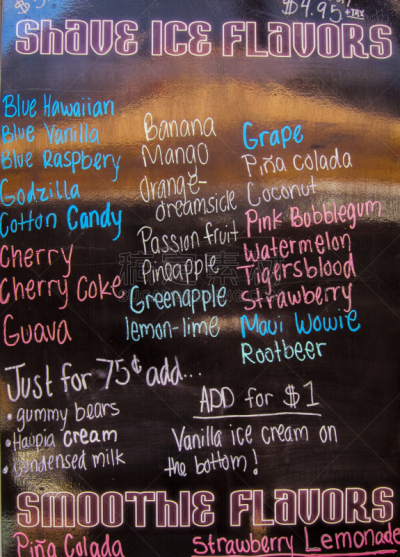 $4.95 +TAX
Shave Ice Flavors
Blue Hawaiian
Blue Vanilla
Blue Raspbery
Godzilla
Cotton Candy
Cherry
Cherry Coke
Guava
Banana
Mango
Orange-
dreamsicle
Passion fruit
Pineapple
Greenapple
lemon-lime
Grape
Piña Colada
Coconut
Pink Bubblegum
Watermelon
Tigersblood
Strawberry
Maui Wowie
Rootbeer
Just for 75¢ add...
• gummy bears
• Haupia cream
• Condensed milk
ADD for $1
Vanilla ice cream on
the bottom!
Smoothie Flavors
Piña Colada
Strawberry Lemonade